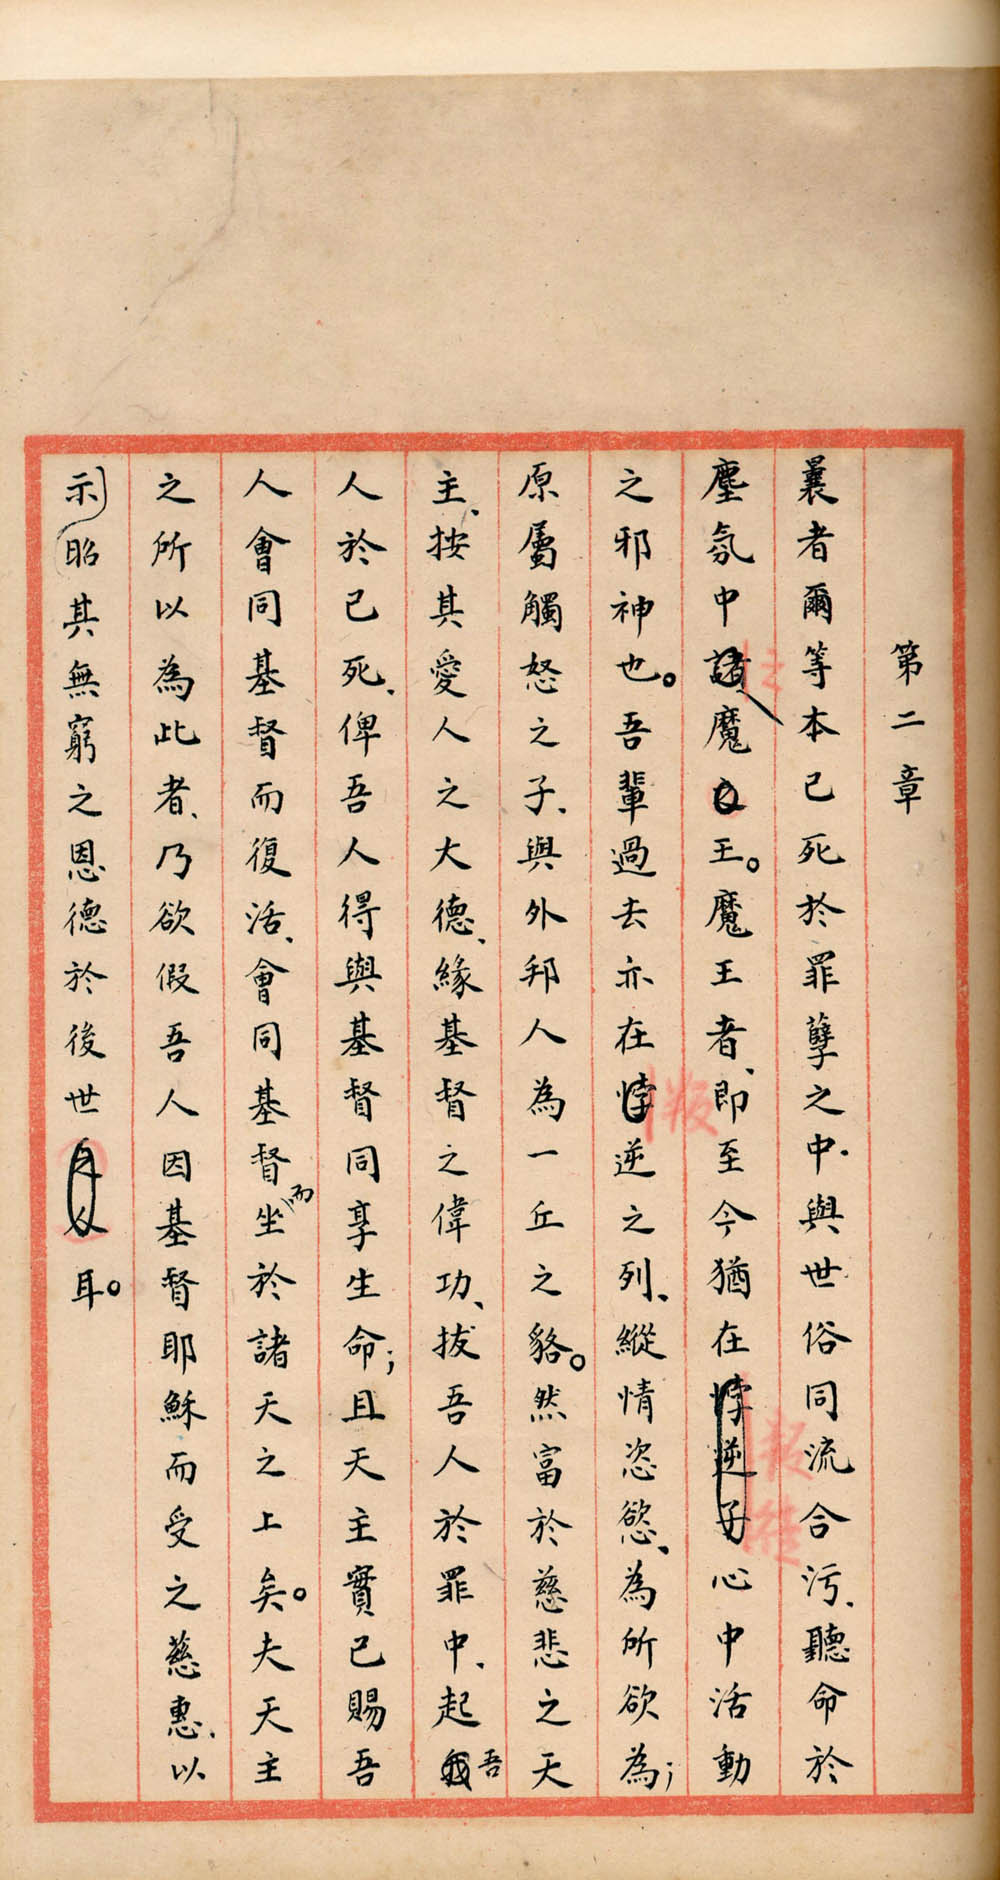 第二章
曩者爾等本已死於罪孽之中．與世俗同流合污、聽命於
塵氛中諸魔之王。魔王者、即至今猶在悖逆子心中活動
之邪神也。吾輩過去亦在悖逆之列、縱情恣慾、為所欲為；
原屬觸怒之子、與外邦人為一丘之貉。然富於慈悲之天
主、按其愛人之大德、緣基督之偉功、拔吾人於罪中、起我吾
人於已死、俾吾人得與基督同享生命；且天主實已賜吾
人會同基督而復活、會同基督而坐於諸天之上矣。夫天主
之所以為此者、乃欲假吾人因基督耶穌而受之慈惠、以
示昭其無窮之恩德於後世耳。
叛